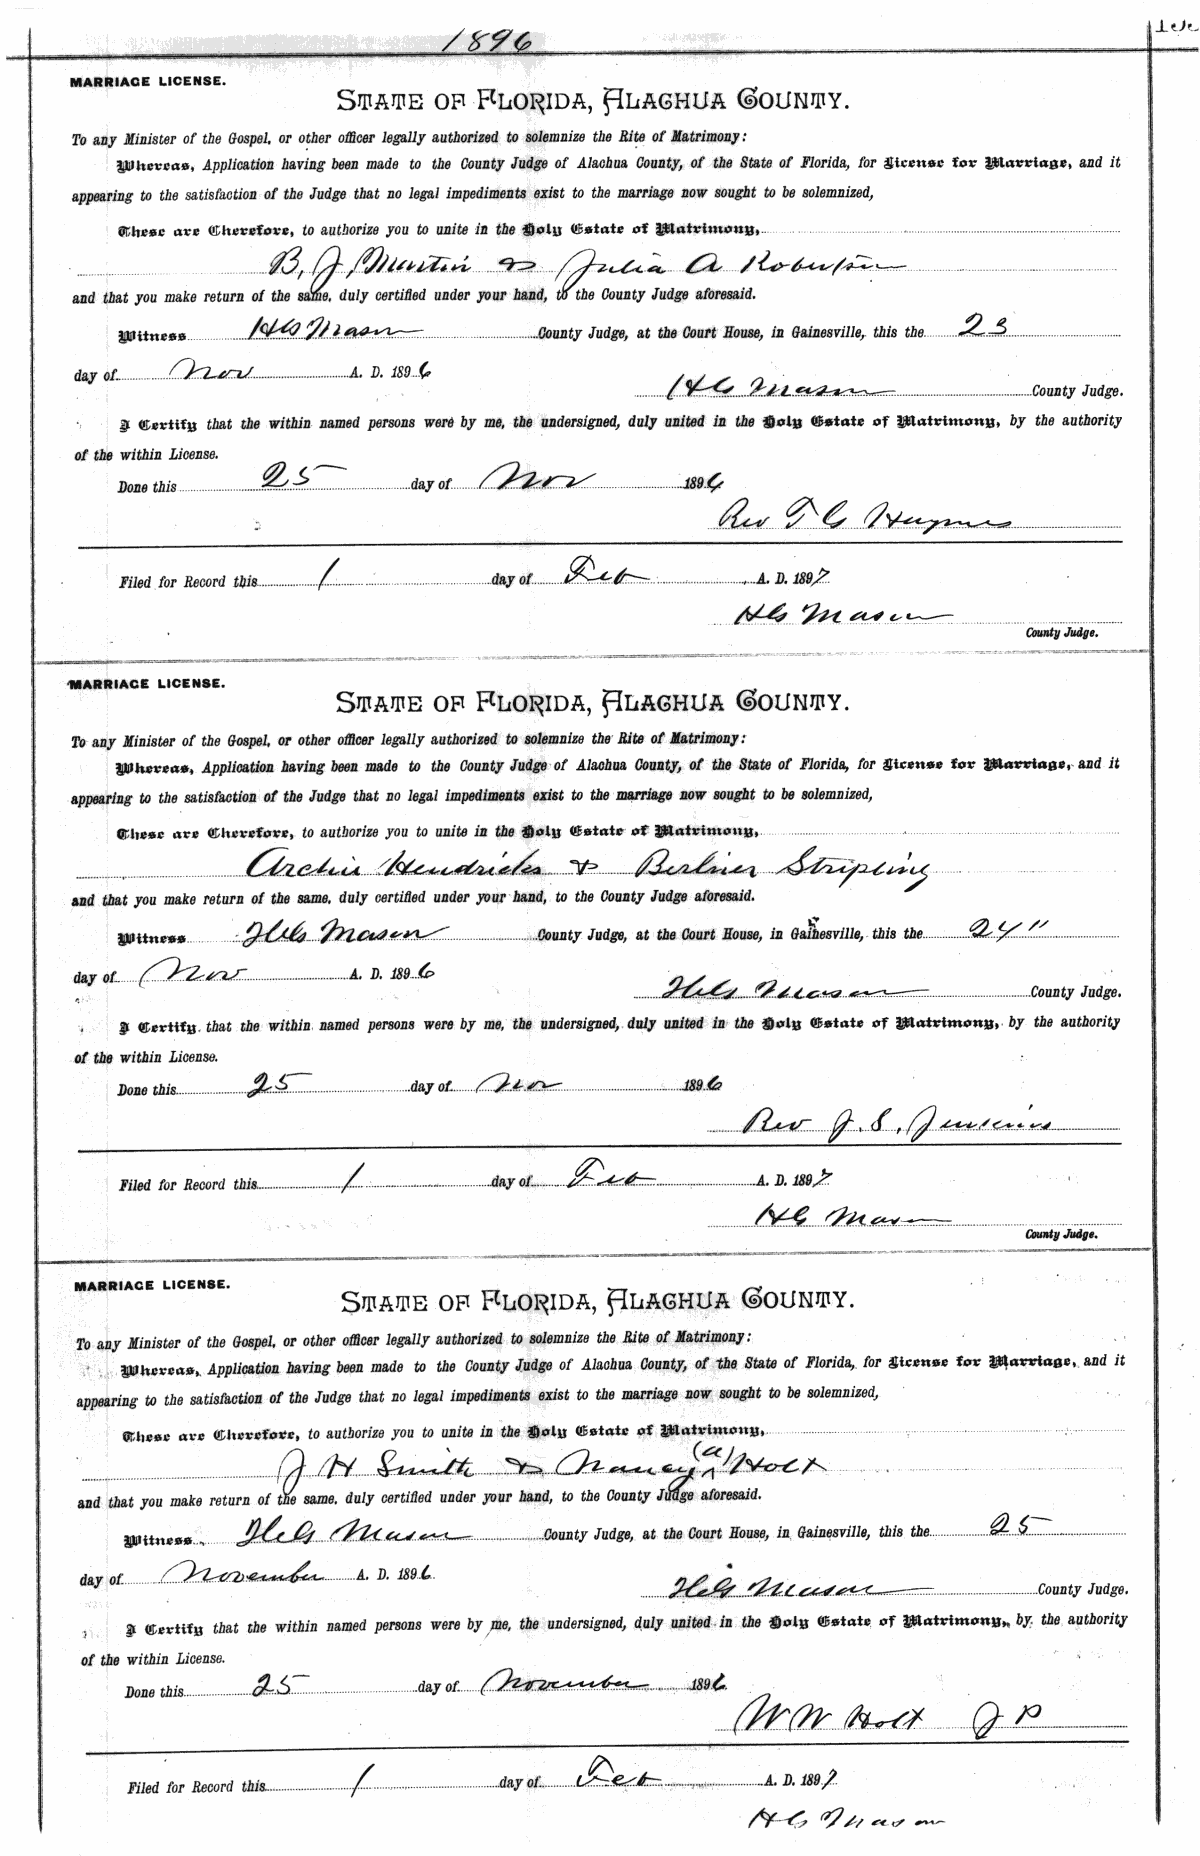 1896
MARRIAGE LICENSE.
STATE OF FLORIDA, ALACHUA COUNTY.
To any Minister of the Gospel, or other officer legally authorized to solemnize the Rite of Matrimony:
Whereas, Application having been made to the County Judge of Alachua County, of the State of Florida, for License for Marriage, and it
appearing to the satisfaction of the Judge that no legal impediments exist to the marriage now sought to be solemnized,
These are Therefore, to authorize you to unite in the Holy Estate of Matrimony,
B. J. Martin & Julia A Robertson
and that you make return of the same, duly certified under your hand, to the County Judge aforesaid.
Witness H G Mason County Judge, at the Court House, in Gainesville, this the 23
day of Nov A. D. 1896
H G Mason County Judge.
I Certify that the within named persons were by me, the undersigned, duly united in the Holy Estate of Matrimony, by the authority
of the within License.
Done this 25 day of Nov 1896
Rev T G Haymes
Filed for Record this 1 day of Feb A. D. 1897
H G Mason
County Judge.
MARRIAGE LICENSE.
STATE OF FLORIDA, ALACHUA COUNTY.
To any Minister of the Gospel, or other officer legally authorized to solemnize the Rite of Matrimony:
Whereas, Application having been made to the County Judge of Alachua County, of the State of Florida, for License for Marriage, and it
appearing to the satisfaction of the Judge that no legal impediments exist to the marriage now sought to be solemnized,
These are Therefore, to authorize you to unite in the Holy Estate of Matrimony,
Archie Hendricks & Berliner Stripling
and that you make return of the same, duly certified under your hand, to the County Judge aforesaid.
Witness H G Mason County Judge, at the Court House, in Gainesville, this the 24"
day of Nov A. D. 1896
H G Mason County Judge.
I Certify that the within named persons were by me, the undersigned, duly united in the Holy Estate of Matrimony, by the authority
of the within License.
Done this 25 day of Nov 1896
Rev J. S. Jenkins
Filed for Record this 1 day of Feb A. D. 1897
H G Mason
County Judge.
MARRIAGE LICENSE.
STATE OF FLORIDA, ALACHUA COUNTY.
To any Minister of the Gospel, or other officer legally authorized to solemnize the Rite of Matrimony:
Whereas, Application having been made to the County Judge of Alachua County, of the State of Florida, for License for Marriage, and it
appearing to the satisfaction of the Judge that no legal impediments exist to the marriage now sought to be solemnized,
These are Therefore, to authorize you to unite in the Holy Estate of Matrimony,
J H Smith & Nancy (a) Holt
and that you make return of the same, duly certified under your hand, to the County Judge aforesaid.
Witness H G Mason County Judge, at the Court House, in Gainesville, this the 25
day of November A. D. 1896.
H G Mason County Judge.
I Certify that the within named persons were by me, the undersigned, duly united in the Holy Estate of Matrimony, by the authority
of the within License.
Done this 25 day of November 1896
W W Holt J P
Filed for Record this 1 day of Feb A. D. 1897
H G Mason